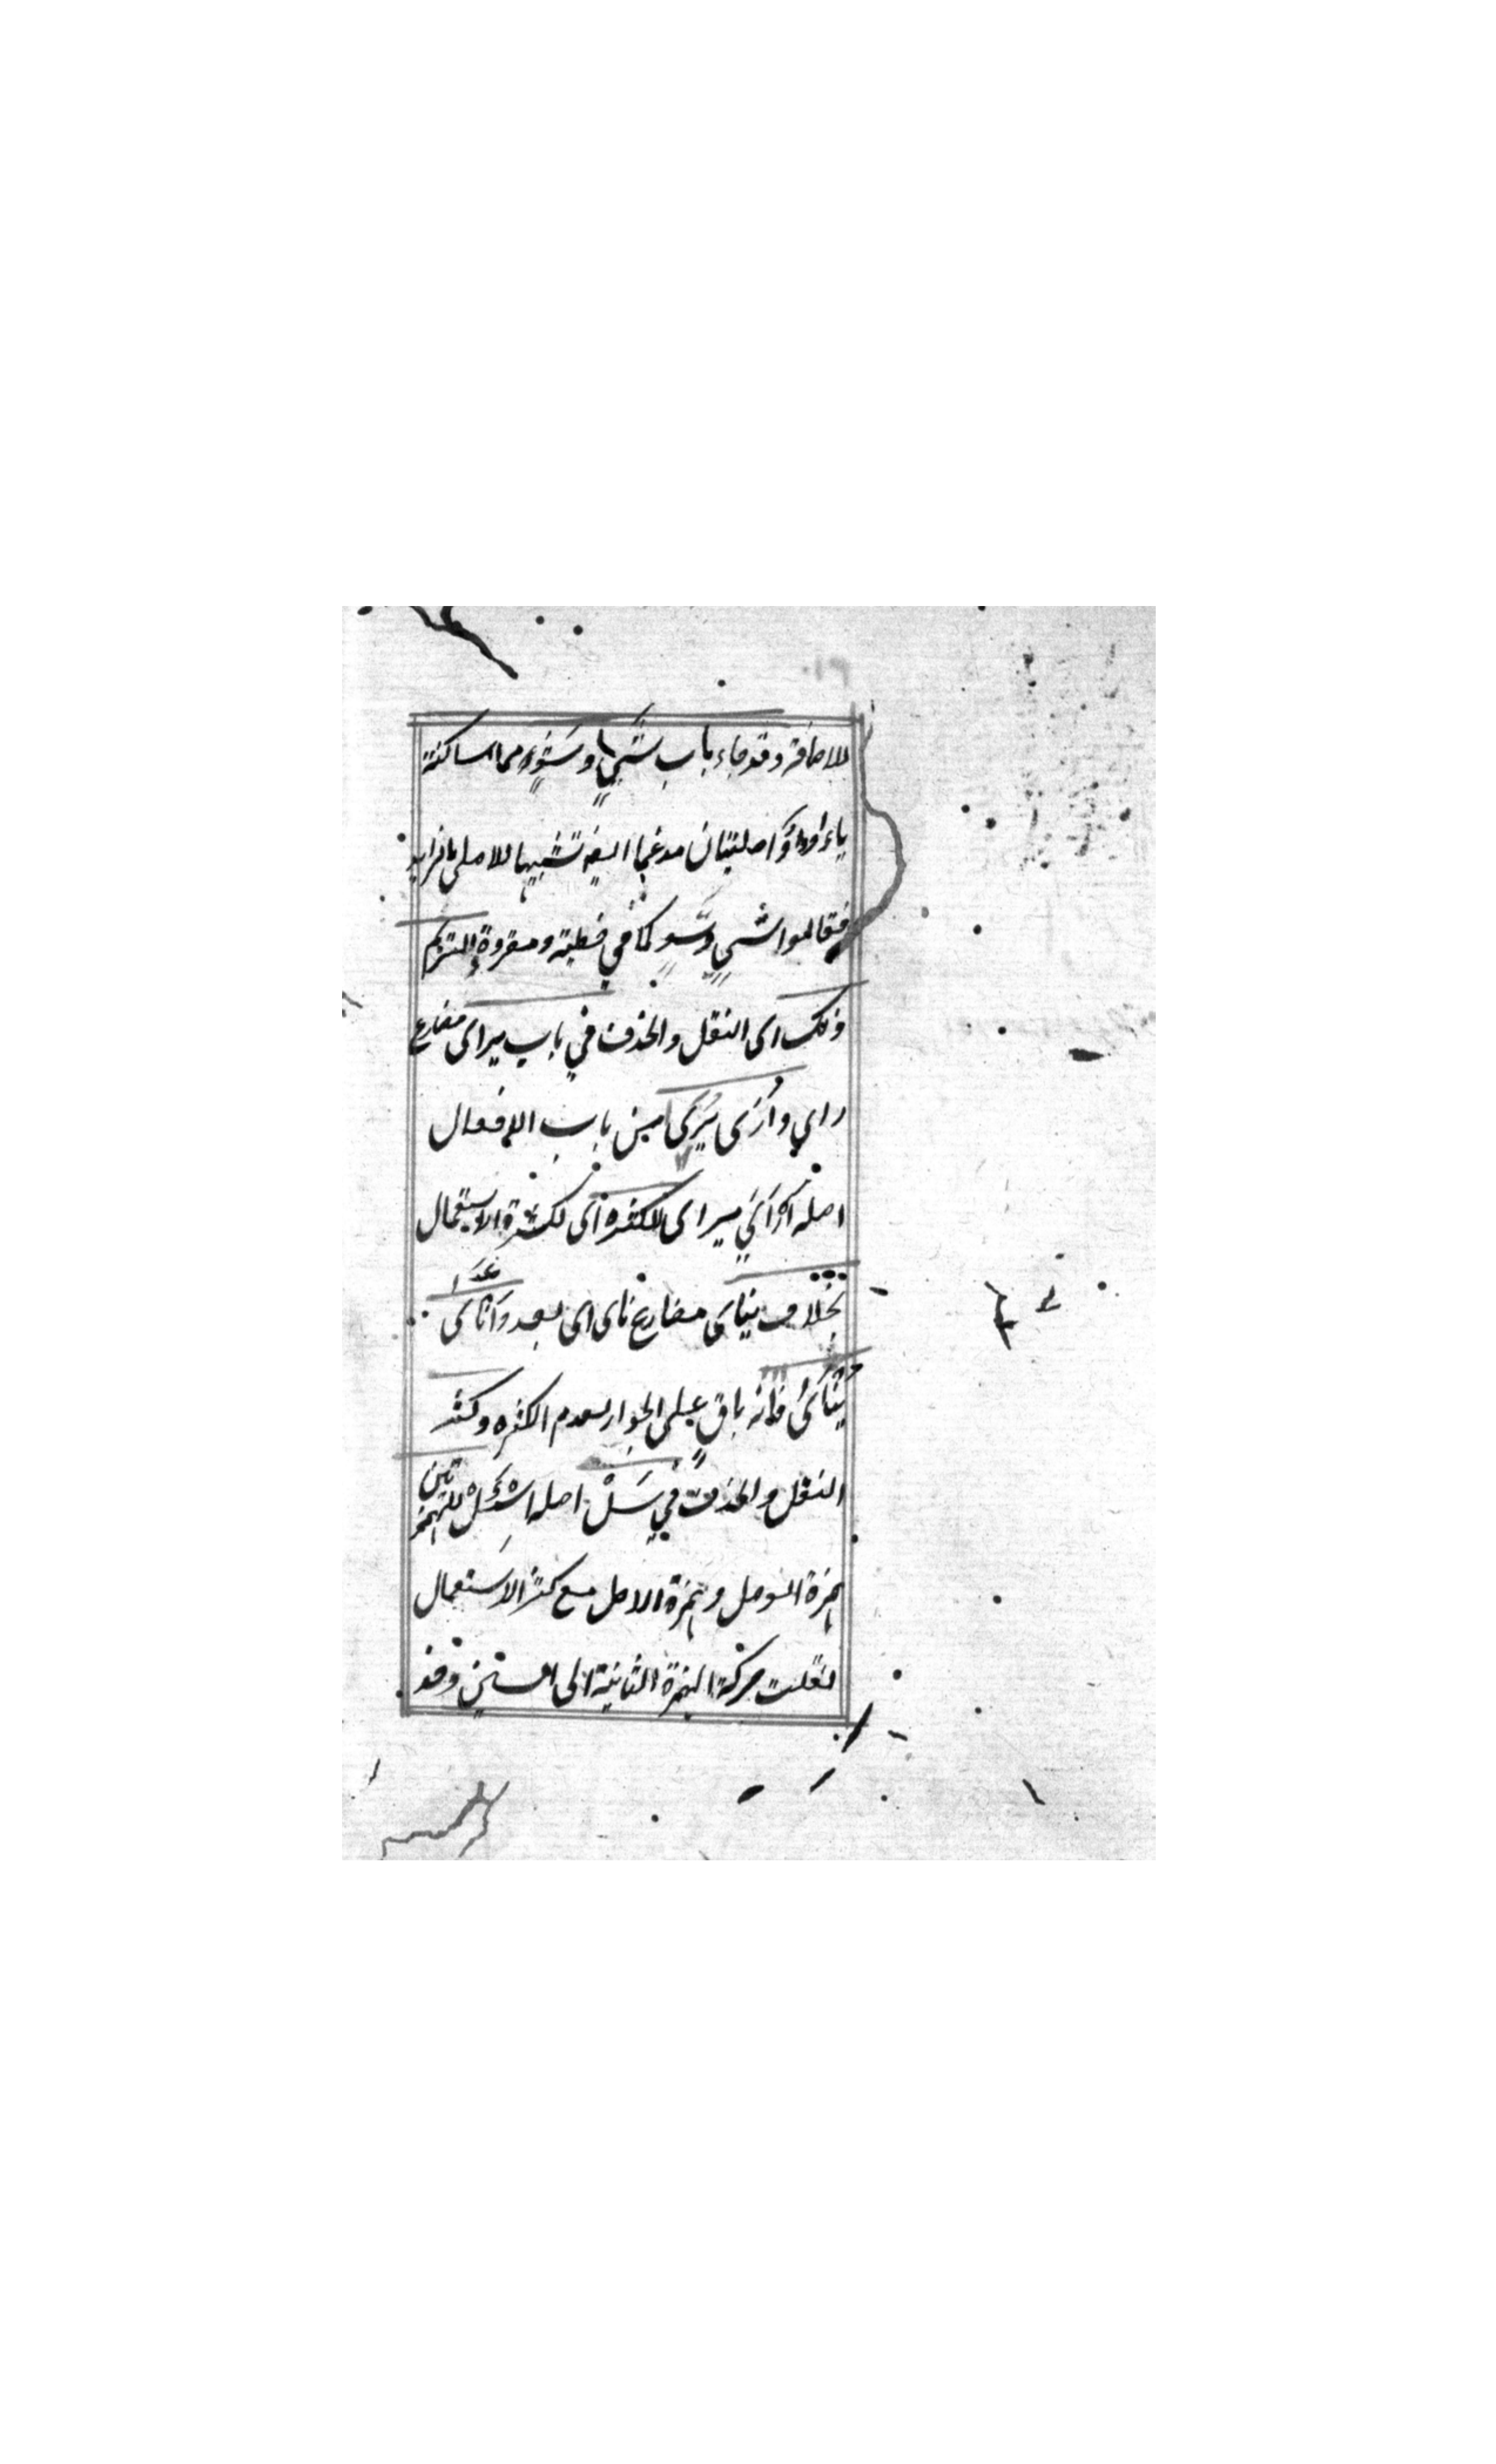 للاضافة وقد جاء باب شيئ وسوء مما الساكنة
ياء او واو اصليتان مدغما ايضا تشبيها للاصلي بالزايد
فقالوا شي وسو كما في خطية ومقروة والتزم
ذلك اى النقل والحذف في باب يراى مضارع
راي وارى يرى من باب الافعال
اصله ارأى يراى للكثرة اى لكثرة الاستعمال
بخلاف يناى مضارع ناى اى بعد واناى
ينائ فانه باق على الجواز لعدم الكثرة وكثر
النقل والحذف في سل اصله اسئل للهمزتين
همزة الوصل وهمزة الاصل مع كثرة الاستعمال
نقلت حركة الهمزة الثانية الى السين وقد